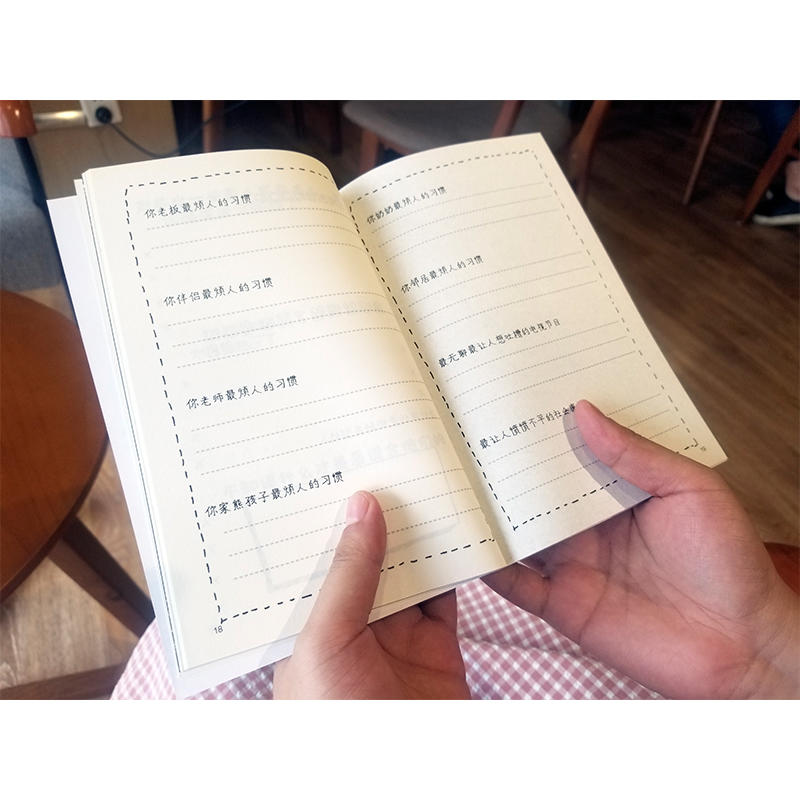 你老板最烦人的习惯
你伴侣最烦人的习惯
你老师最烦人的习惯
你家熊孩子最烦人的习惯
18
你奶奶最烦人的习惯
你邻居最烦人的习惯
最无聊最让人想吐槽的电视节目
最让人愤愤不平的社会
19